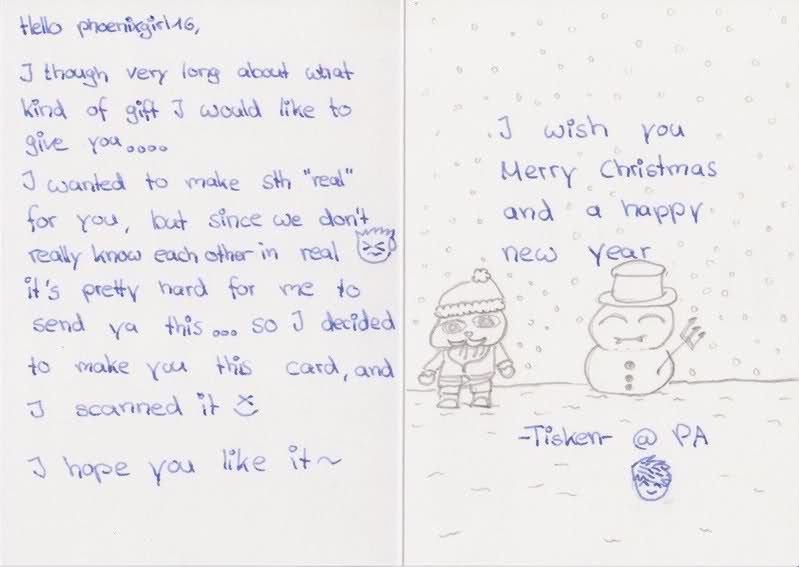 Hello phoenixgirl16,
I though very long about what
kind of gift I would like to
give you....
I wanted to make sth "real"
for you, but since we don't
really know each other in real
it's pretty hard for me to
send ya this... so I decided
to make you this card, and
I scanned it :)
I hope you like it~
I wish you
Merry Christmas
and a happy
new year
-Tisken- @ PA